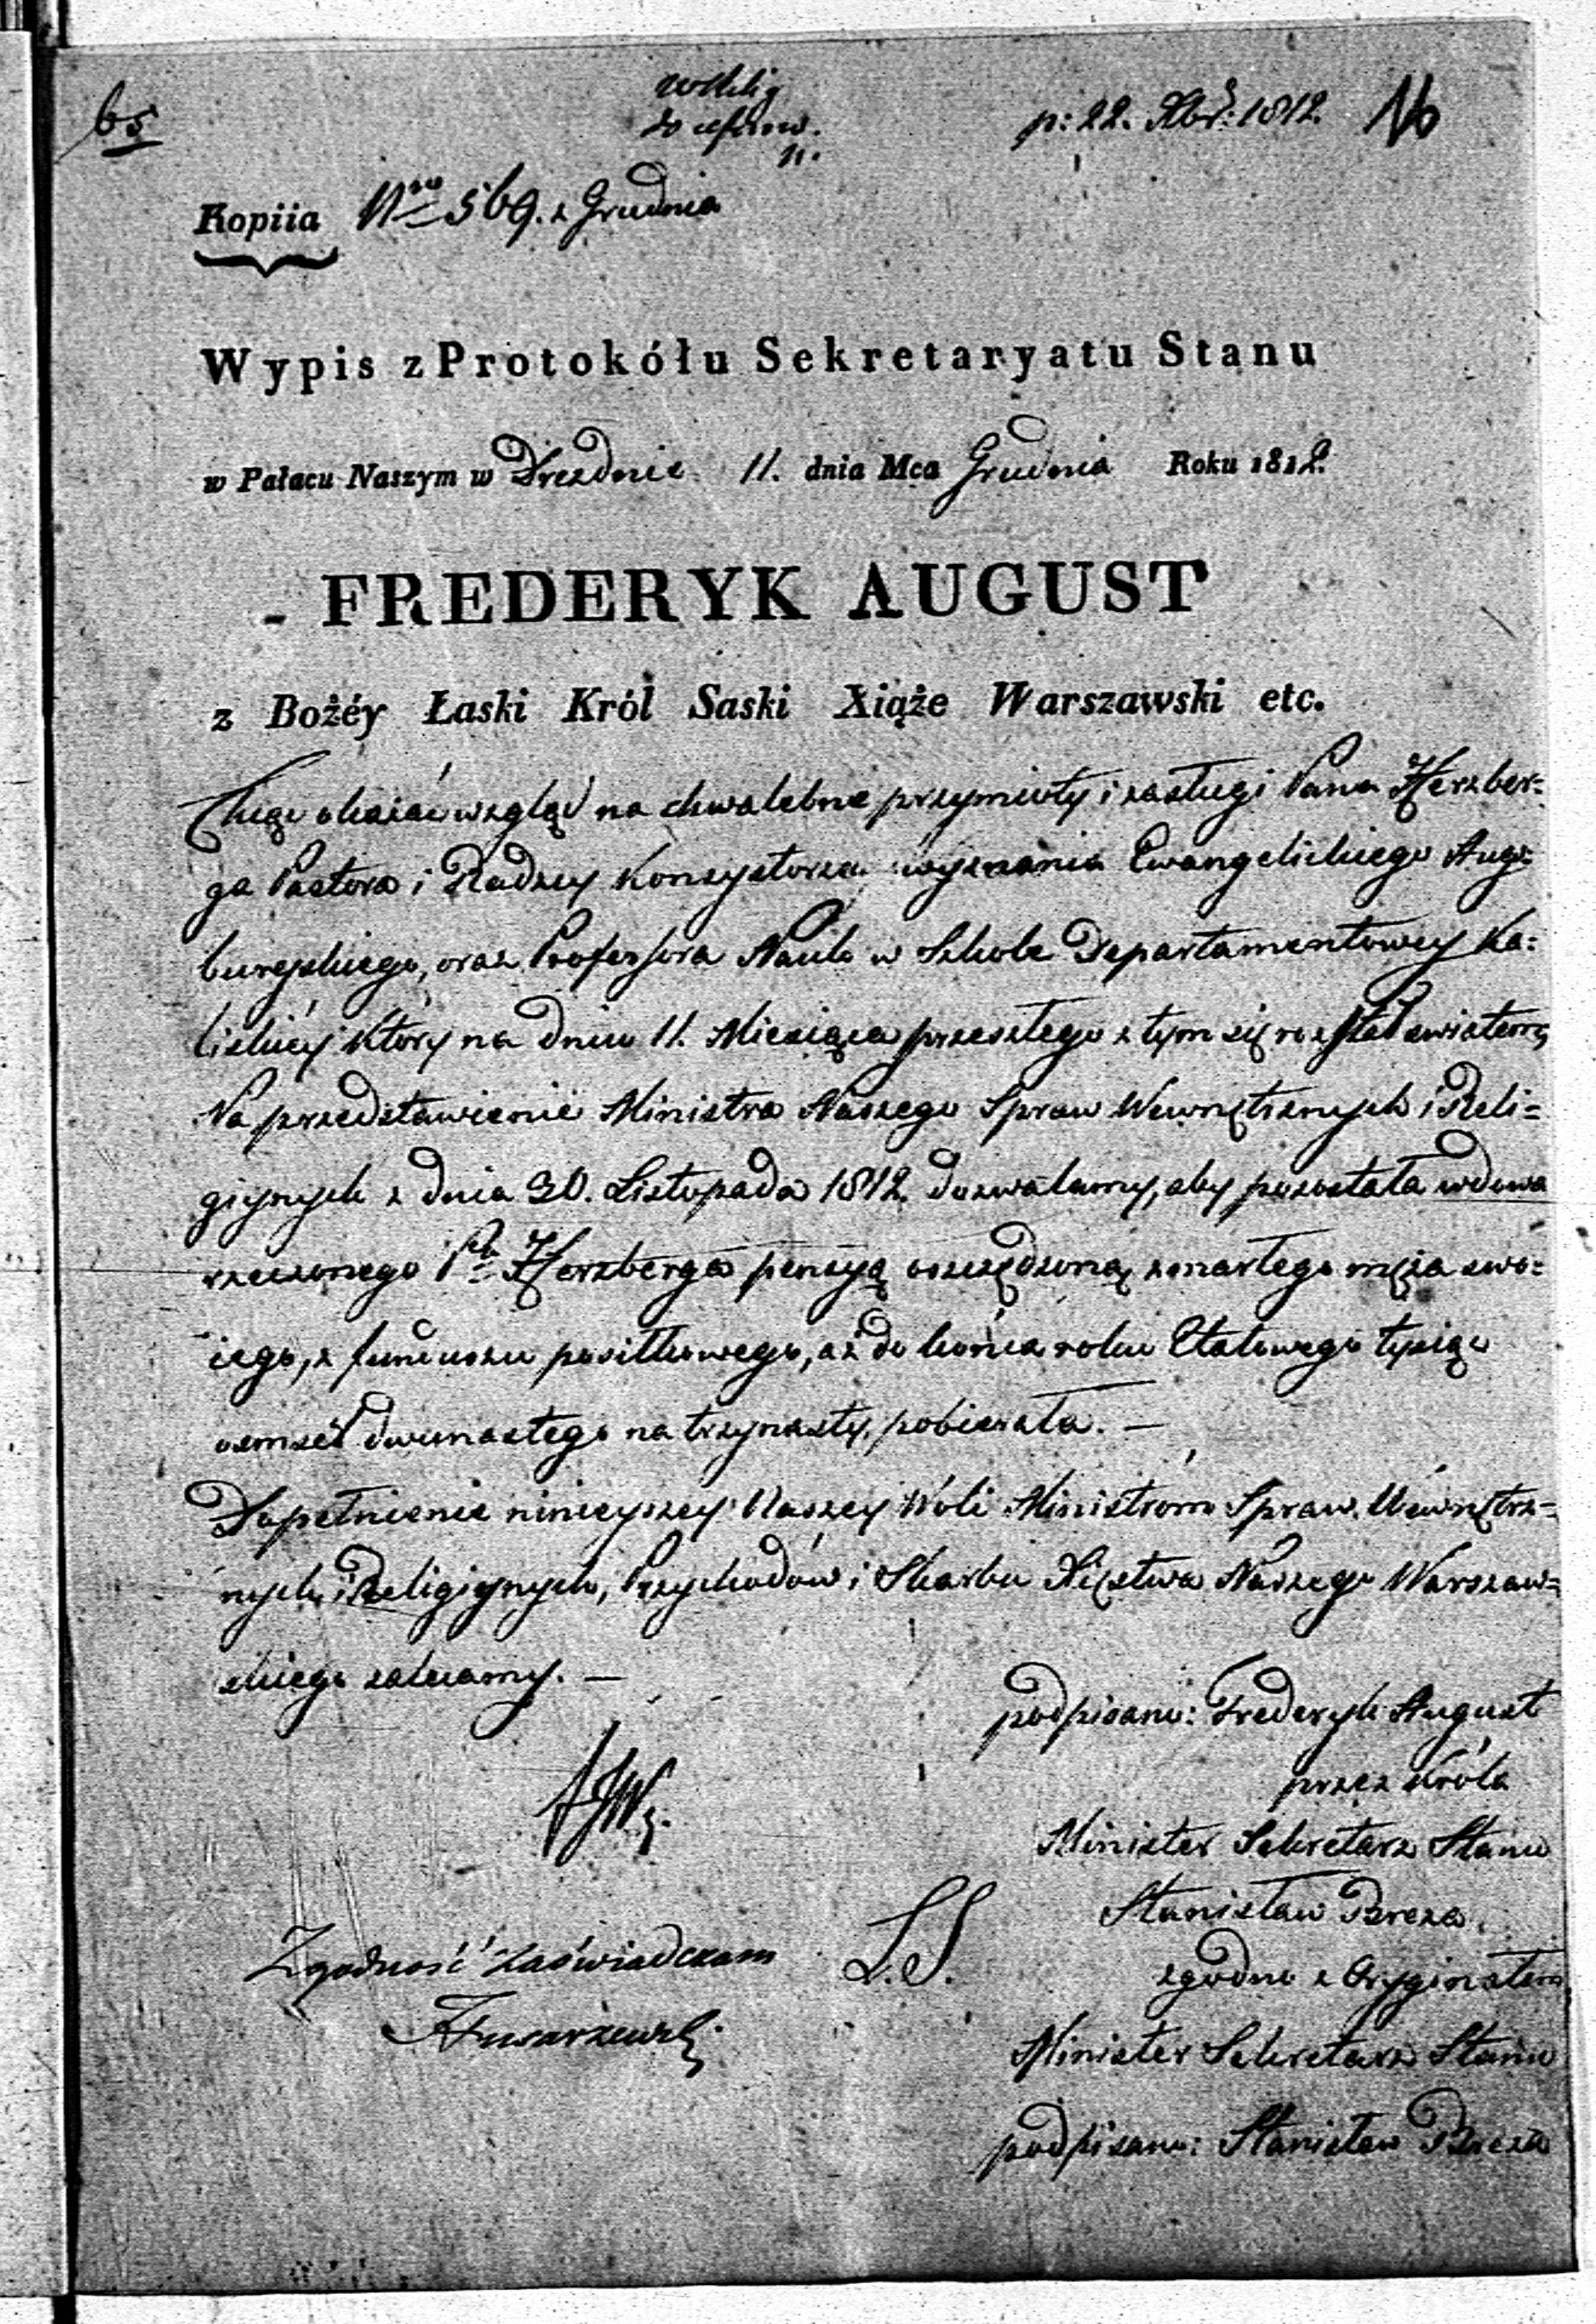 65
p: 22. Xbr: 1812. 16
Kopiia Nro 569. z Grudnia
Wypis z Protokółu Sekretaryatu Stanu
w Pałacu Naszym w Dreznie 11. dnia Mca Grudnia Roku 1812.
FREDERYK AUGUST
z Bożéy Łaski Król Saski Xiąże Warszawski etc.
Chcąc okazać wzgląd na chwalebne przymioty i zasługi Pana Herzber=
ga Pastora i Radzcy Konsystorza wyznania Ewangelickiego Augs=
burgskiego, oraz Professora Nauk w Szkole Departamentowey Ka=
liskiéy, który na dniu 11. Miesiąca przeszłego z tym się rozstał światem,
Na przedstawienie Ministra Naszego Spraw Wewnętrznych i Reli=
giynych z dnia 30. Listopada 1812. dozwalamy, aby pozostała wdowa
rzeczonego Pa Herzberga pensyą oszczędzoną zmarłego męża swo=
iego, z funduszu posiłkowego, aż do końca roku Etatowego tysiąc
osmset dwunastego na trzynasty, pobierała. —
Dopełnienie ninieyszey Naszey Woli Ministróm Spraw Wewnętrz=
nych i Religiynych, Przychodów i Skarbu Xięstwa Naszego Warszaw=
skiego zalecamy. —
podpisano: Frederyk August
przez Króla
Minister Sekretarz Stanu
Stanisław Breza.
Zgodność zaświadczam L.S. zgodno z Oryginałem
Minister Sekretarz Stanu
podpisano: Stanisław Breza